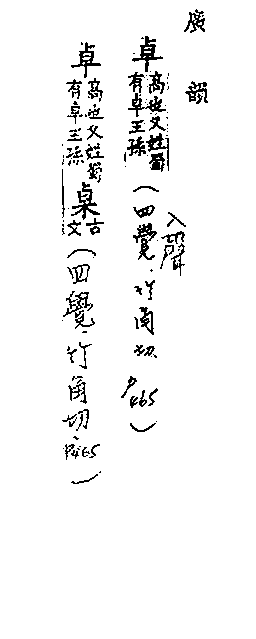 廣韻
卓高也又姓蜀有卓王孫(四覺.竹角切 P465)
入聲
卓高也又姓蜀有卓王孫㮂古文(四覺.竹角切.P465)